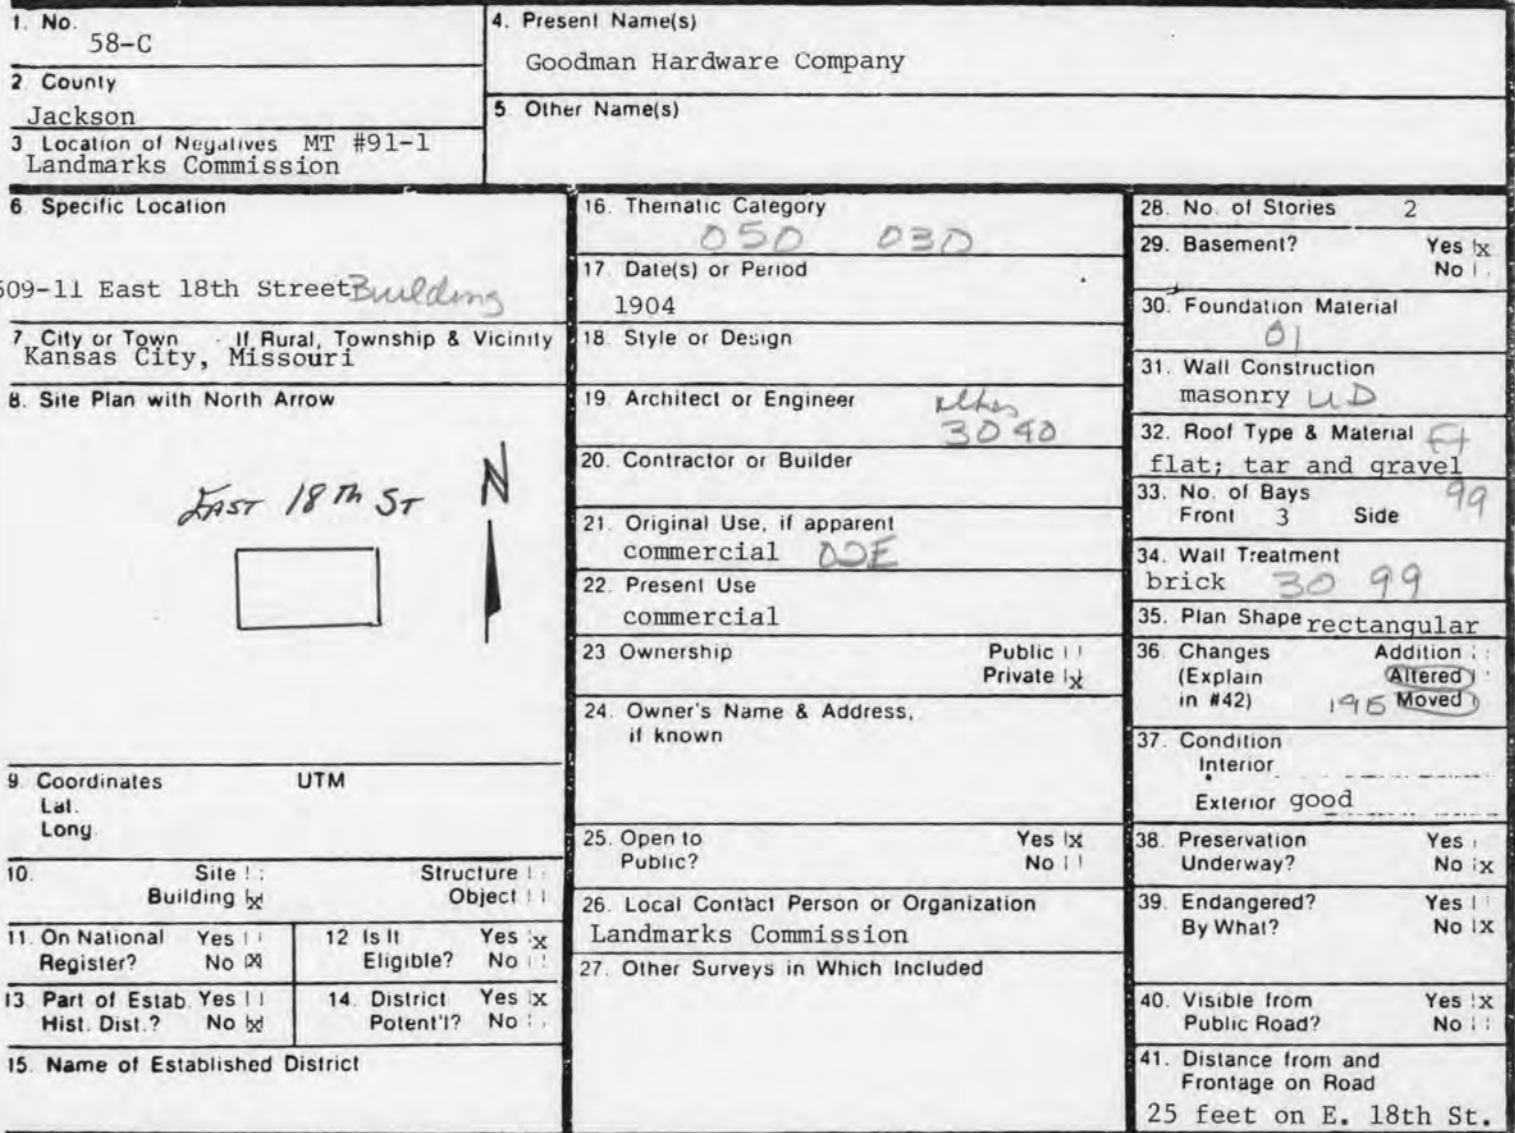 1. No.
58-C
2. County
Jackson
3 Location of Negatives MT #91-1
Landmarks Commission
4. Present Name(s)
Goodman Hardware Company
5 Other Name(s)
6. Specific Location
509-11 East 18th Street Building
7. City or Town If Rural, Township & Vicinity
Kansas City, Missouri
8. Site Plan with North Arrow
EAST 18TH ST N
9. Coordinates UTM
Lat.
Long.
10. Site Structure
Building x Object
11. On National Yes
Register? No x
12 Is It Yes x
Eligible? No
13. Part of Estab. Yes
Hist. Dist.? No x
14. District Yes x
Potent'l? No
15. Name of Established District
16. Thematic Category
050 030
17. Date(s) or Period
1904
18. Style or Design
19. Architect or Engineer
3040
20. Contractor or Builder
21. Original Use, if apparent
commercial 02E
22. Present Use
commercial
23 Ownership Public
Private x
24. Owner's Name & Address,
if known
25. Open to Yes x
Public? No
26. Local Contact Person or Organization
Landmarks Commission
27. Other Surveys in Which Included
28. No. of Stories 2
29. Basement? Yes x
No
30. Foundation Material
01
31. Wall Construction
masonry UD
32. Roof Type & Material Ft
flat; tar and gravel
33. No. of Bays 99
Front 3 Side
34. Wall Treatment
brick 30 99
35. Plan Shape rectangular
36. Changes Addition
(Explain Altered
in #42) Moved
37. Condition
Interior
Exterior good
38. Preservation Yes
Underway? No x
39. Endangered? Yes
By What? No x
40. Visible from Yes x
Public Road? No
41. Distance from and
Frontage on Road
25 feet on E. 18th St.